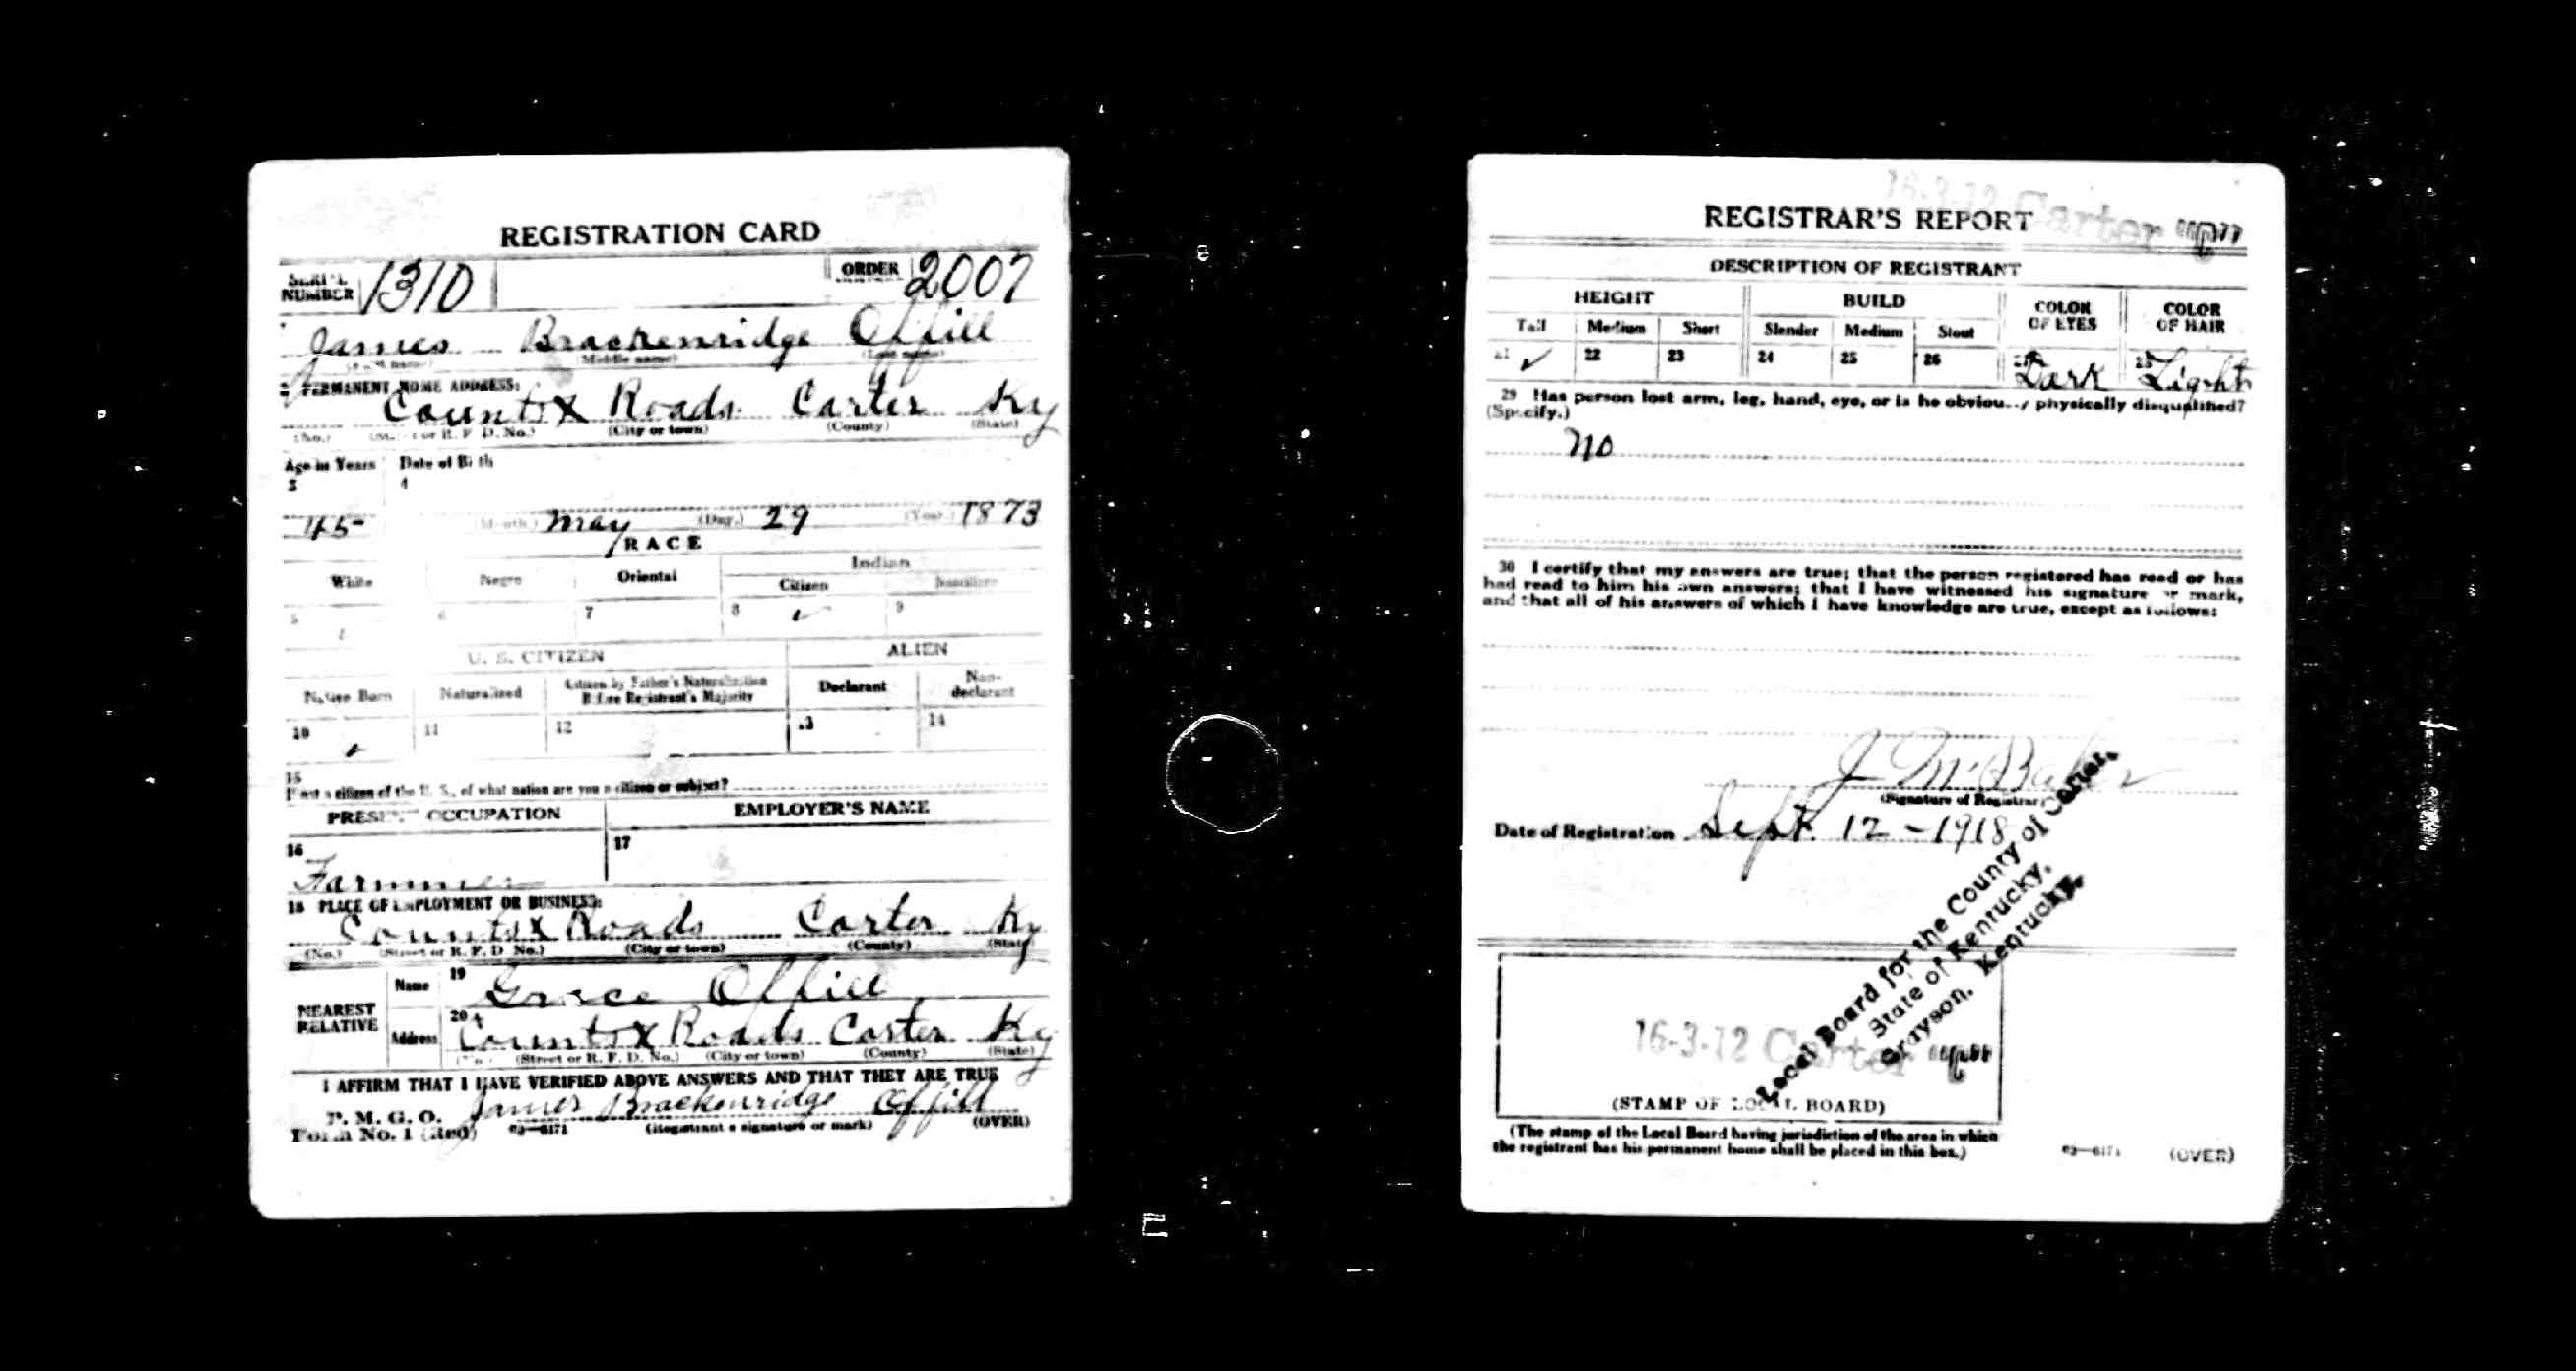 REGISTRATION CARD
SERIAL NUMBER 1310 ORDER 2007
James Brackenridge Offill
(Middle name) (Last name)
2 PERMANENT HOME ADDRESS:
Counts X Roads Carter Ky
(No.) (Street or R. F. D. No.) (City or town) (County) (State)
Age in Years Date of Birth
3 4
45 (Month) May (Day.) 29 (Year.) 1873
RACE
White Negro Oriental Indian
Citizen Noncitizen
5 6 7 8 ✓ 9
U. S. CITIZEN ALIEN
Native Born Naturalized Citizen by Father's Naturalization Before Registrant's Majority Declarant Non-declarant
10 ✓ 11 12 13 14
15
If not a citizen of the U. S., of what nation are you a citizen or subject?
PRESENT OCCUPATION EMPLOYER'S NAME
16 17
Farmmer
18 PLACE OF EMPLOYMENT OR BUSINESS:
Counts X Roads Carter Ky
(No.) (Street or R. F. D. No.) (City or town) (County) (State)
NEAREST RELATIVE Name 19 Grace Offill
Address 20 Counts X Roads Carter Ky
(No.) (Street or R. F. D. No.) (City or town) (County) (State)
I AFFIRM THAT I HAVE VERIFIED ABOVE ANSWERS AND THAT THEY ARE TRUE
P. M. G. O. James Brackenridge Offill
Form No. 1 (Red) 03—6171 (Registrant's signature or mark) (OVER)
16-3-12 Carter
REGISTRAR'S REPORT
DESCRIPTION OF REGISTRANT
HEIGHT BUILD COLOR OF EYES COLOR OF HAIR
Tall Medium Short Slender Medium Stout
21 ✓ 22 23 24 25 26 27 Dark 28 Light
29 Has person lost arm, leg, hand, eye, or is he obviously physically disqualified?
(Specify.)
No
30 I certify that my answers are true; that the person registered has read or has
had read to him his own answers; that I have witnessed his signature or mark,
and that all of his answers of which I have knowledge are true, except as follows:
J M Baker
(Signature of Registrar)
Date of Registration Sept. 12 - 1918
Local Board for the County of Carter,
State of Kentucky,
Grayson, Kentucky.
16-3-12 Carter
(STAMP OF LOCAL BOARD)
(The stamp of the Local Board having jurisdiction of the area in which
the registrant has his permanent home shall be placed in this box.)
03—6171 (OVER)